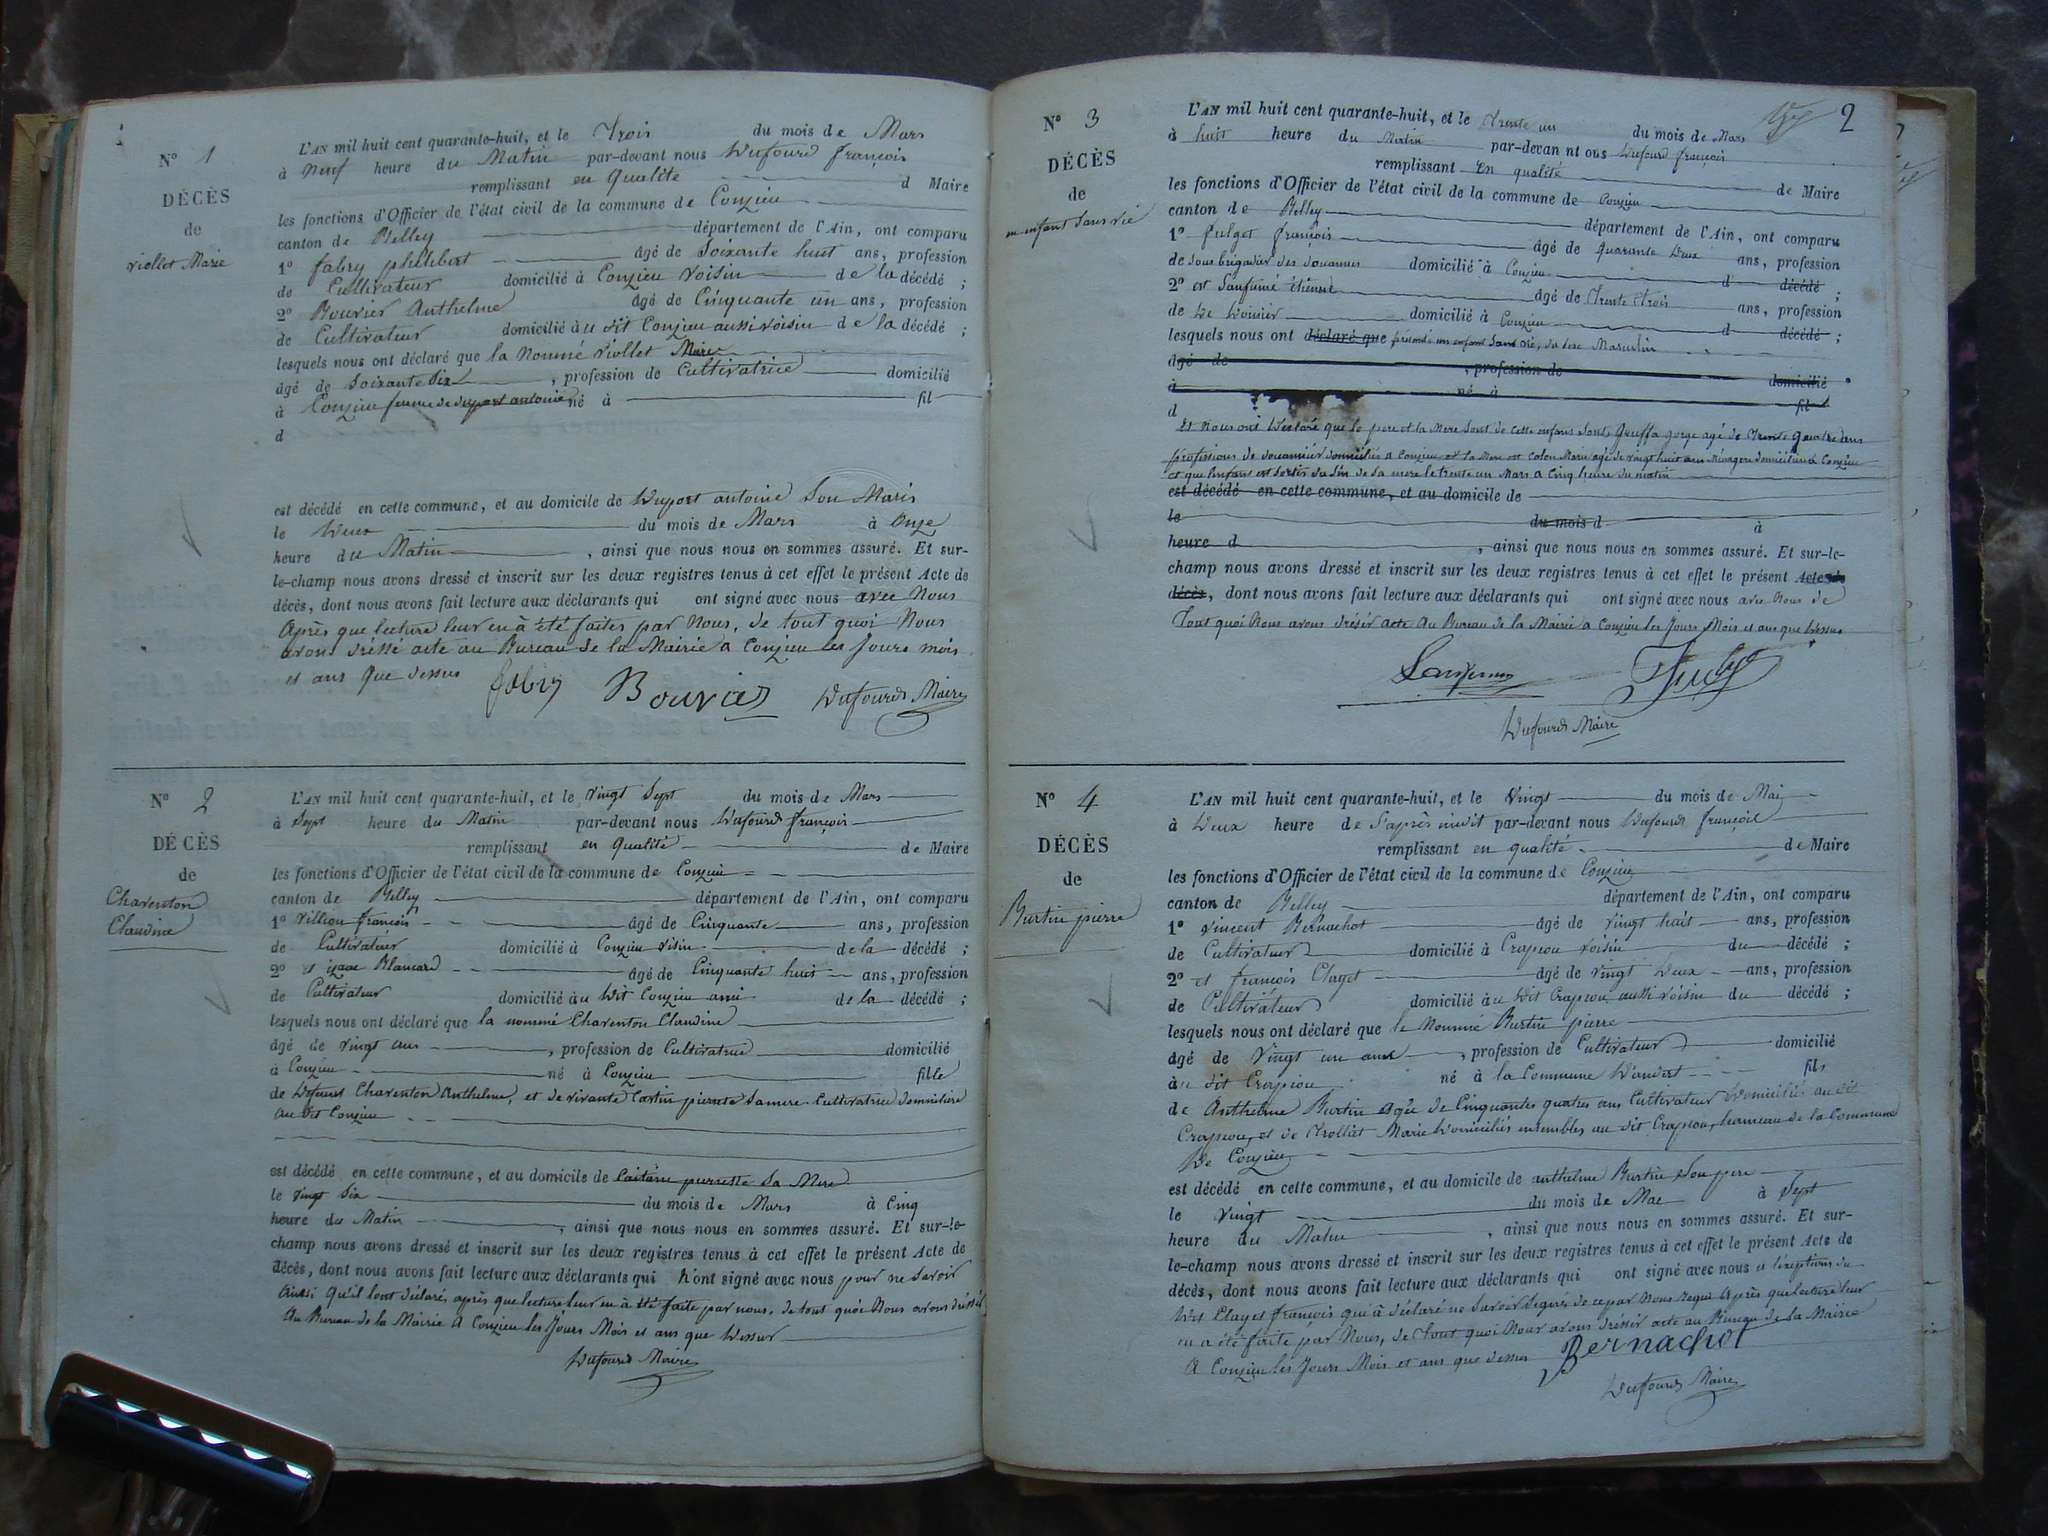 N° 1
DÉCÈS
de
Viollet Marie
L'AN mil huit cent quarante-huit, et le Trois du mois de Mars
à neuf heure du Matin par-devant nous Dufourd françois
remplissant en Qualité d Maire
les fonctions d'Officier de l'état civil de la commune de Conzieu
canton de Belley département de l'Ain, ont comparu
1° fabry philibert âgé de Soixante huit ans, profession
de Cultivateur domicilié à Conzieu voisin de la décédé ;
2° Bouvier Anthelme âgé de Cinquante un ans, profession
de Cultivateur domicilié au dit Conzieu aussi voisin de la décédé ;
lesquels nous ont déclaré que la Nommé Viollet Marie
âgé de Soixante Six , profession de Cultivatrice domicilié
à Conzieu femme de duport antoine né à fil
d
est décédé en cette commune, et au domicile de Duport antoine Son Maris
le Deux du mois de Mars à Onze
heure du Matin , ainsi que nous nous en sommes assuré. Et sur-
le-champ nous avons dressé et inscrit sur les deux registres tenus à cet effet le présent Acte de
décès, dont nous avons fait lecture aux déclarants qui ont signé avec nous avec Nous
Après que lecture leur en à été faites par Nous, de tout quoi Nous
avons dréssé acte au Bureau de la Mairie a Conzieu les Jours mois
et ans Que dessus fabry Bouvier Dufourd Maire
N° 2
DÉCÈS
de
Charenton
Claudine
L'AN mil huit cent quarante-huit, et le vingt Sept du mois de Mars
à Sept heure du Matin par-devant nous Dufourd françois
remplissant en Qualité de Maire
les fonctions d'Officier de l'état civil de la commune de Conzieu
canton de Belley département de l'Ain, ont comparu
1° Villion françois âgé de Cinquante ans, profession
de Cultivateur domicilié à Conzieu visin de la décédé ;
2° et izaac Blancard âgé de Cinquante huit ans, profession
de Cultivateur domicilié au Dit Conzieu de la décédé ;
lesquels nous ont déclaré que la nommé Charenton Claudine
âgé de vingt ans , profession de Cultivatrice domicilié
à Conzieu né à Conzieu fille
de Defunt Charenton Anthelme, et de vivante pierrete Sa mere Cultivatrice domicilié
au dit Conzieu
est décédé en cette commune, et au domicile de pierrette Sa Mere
le vingt Six du mois de Mars à Cinq
heure du Matin , ainsi que nous nous en sommes assuré. Et sur-le-
champ nous avons dressé et inscrit sur les deux registres tenus à cet effet le présent Acte de
décès, dont nous avons fait lecture aux déclarants qui n'ont signé avec nous pour ne Savoir
Ainsi Qu'il lont déclaré, après que lecture leur en à été faite par nous, de tout quoi Nous avons dréssé
Au Bureau de la Mairie A Conzieu les Jours Mois et ans que Dessus
Dufourd Maire
2
N° 3
DÉCÈS
de
un enfant Sans vie
L'AN mil huit cent quarante-huit, et le Trente un du mois de Mars
à huit heure du Matin par-devant nous Dufourd françois
remplissant En qualité de Maire
les fonctions d'Officier de l'état civil de la commune de Conzieu
canton de Belley département de l'Ain, ont comparu
1° françois âgé de Quarante Deux ans, profession
de Sous brigadier des douannes domicilié à Conzieu d décédé ;
2° et étienne âgé de Trente Trois ans, profession
de Douanier domicilié à Conzieu d décédé ;
lesquels nous ont déclaré que présenté un enfant Sans vie, du Sexe Masculin
âgé de , profession de domicilié
à né à fil
d
Et Nous ont Déclaré que le pere et la Mere Sont de Cette enfans Sont, Gorge agé de Trente Quatre ans
professions de douannier domicilié a Conzieu et la Mere est Colon Marie agé de Vingt huit ans Ménagere domicilié a Conzieu
et que lenfans est Sortis du Sin de Sa mere le trente un Mars a Cinq heure du matin
est décédé en cette commune, et au domicile de
le du mois d à
heure d , ainsi que nous nous en sommes assuré. Et sur-le-
champ nous avons dressé et inscrit sur les deux registres tenus à cet effet le présent Acte de
décès, dont nous avons fait lecture aux déclarants qui ont signé avec nous avec Nous de
Tout quoi Nous avons dréssér acte Au Bureau de la Mairie a Conzieu les Jours Mois et ans que Dessus
Dufourd Maire
N° 4
DÉCÈS
de
Burtin pierre
L'AN mil huit cent quarante-huit, et le Vingt du mois de Mai
à Deux heure de l'après midit par-devant nous Dufourd françois
remplissant en qualité de Maire
les fonctions d'Officier de l'état civil de la commune de Conzieu
canton de Belley département de l'Ain, ont comparu
1° Vincent Bernachot âgé de Vingt huit ans, profession
de Cultivateur domicilié à Crapeou voisin du décédé ;
2° et françois Clayet âgé de vingt Deux ans, profession
de Cultivateur domicilié au Dit Crapeou aussi voisin du décédé ;
lesquels nous ont déclaré que le Nommé Burtin pierre
âgé de Vingt un ans , profession de Cultivateur domicilié
au dit Crapeou né à la Commune D'andert fils
de Anthelme Burtin agée de Cinquantes quatres ans Cultivateur Domicilié au dit
Crapeou, et de Trolliet Marie Domiciliés ensembles au dit Crapeou, hameau de la Commune
De Conzieu
est décédé en cette commune, et au domicile de anthelme Burtin Son pere
le Vingt du mois de Mai à Sept
heure du Matin , ainsi que nous nous en sommes assuré. Et sur-
le-champ nous avons dressé et inscrit sur les deux registres tenus à cet effet le présent Acte de
décès, dont nous avons fait lecture aux déclarants qui ont signé avec nous a l'exeptions du
Dit Clayet françois qui à déclaré ne Savoir Signér de ce par Nous requi Après que lecture leur
en a été faite par Nous, de Tout quoi Nous avons dressér acte au Bureau de la Mairie
A Conzieu les Jours Mois et ans que dessus Bernachot
Dufourd Maire